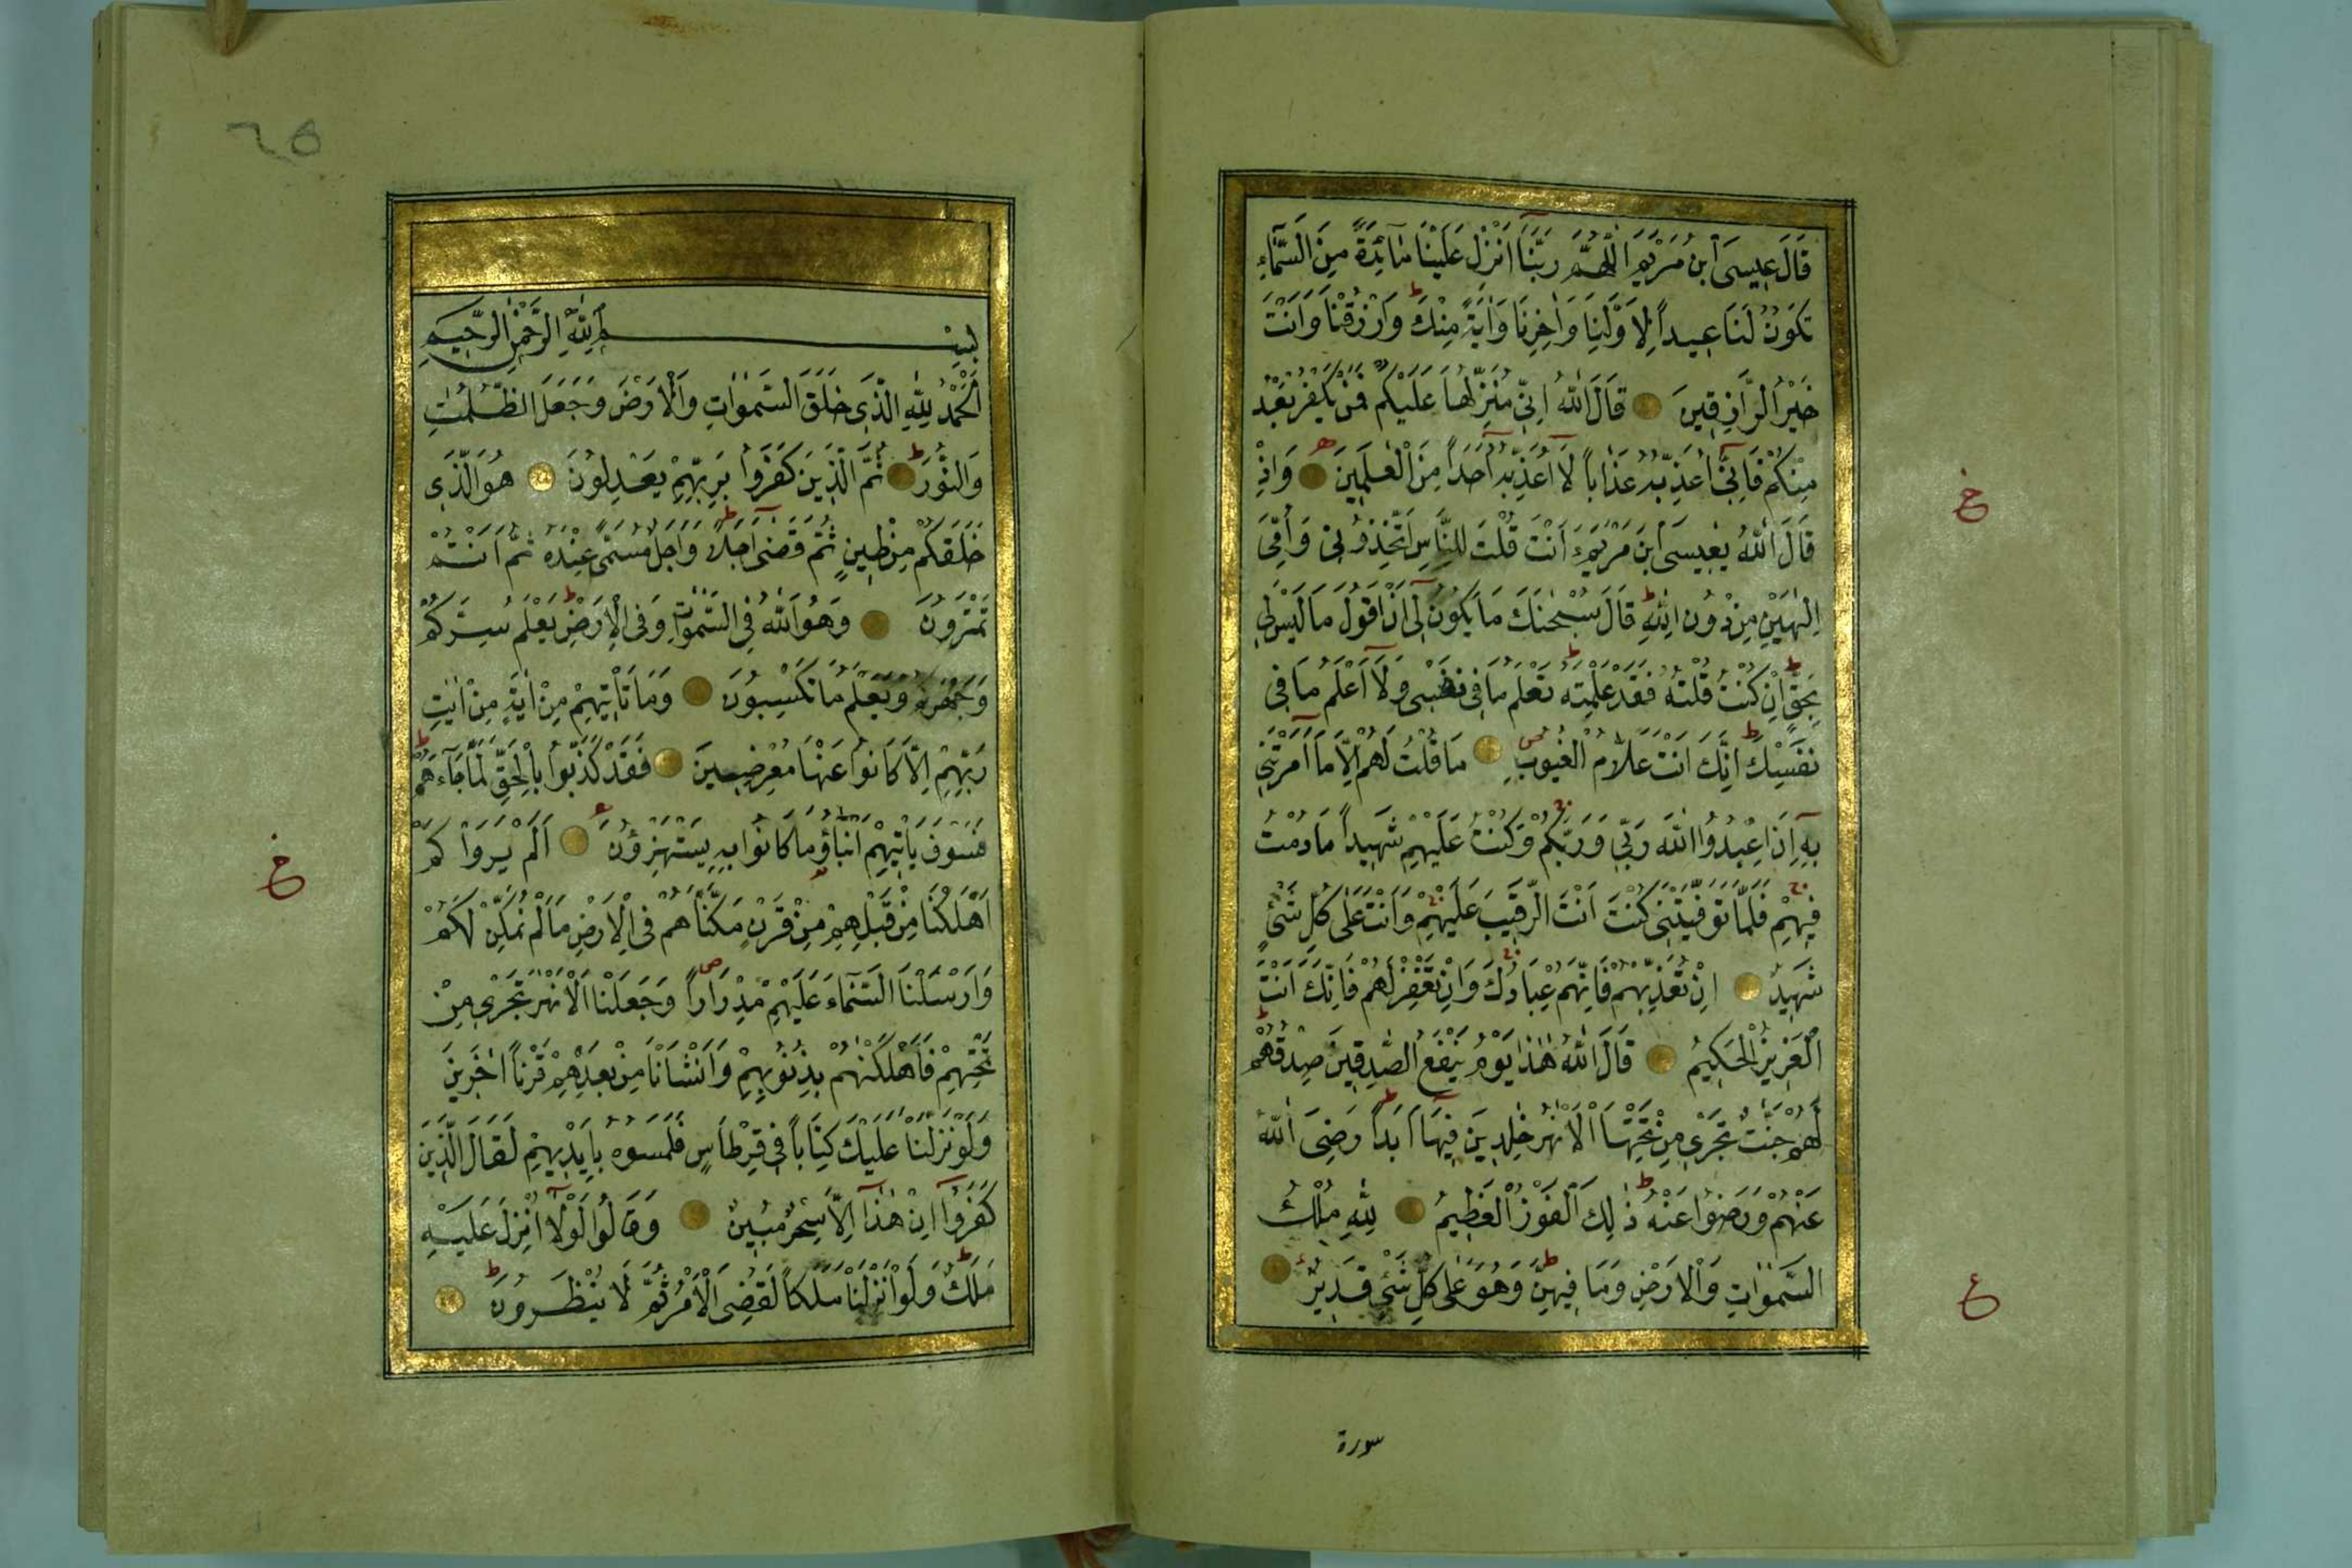 قَالَ عِيسَى ابْنُ مَرْيَمَ اللّٰهُمَّ رَبَّنَا اَنْزِلْ عَلَيْنَا مَائِدَةً مِنَ السَّمَاءِ
تَكُونُ لَنَا عِيداً لِاَوَّلِنَا وَاٰخِرِنَا وَاٰيَةً مِنْكَ ط وَارْزُقْنَا وَاَنْتَ
خَيْرُ الرَّازِقِينَ قَالَ اللّٰهُ اِنِّي مُنَزِّلُهَا عَلَيْكُمْ فَمَنْ يَكْفُرْ بَعْدُ
مِنْكُمْ فَاِنِّي اُعَذِّبُهُ عَذَاباً لَا اُعَذِّبُهُ اَحَداً مِنَ الْعٰلَمِينَ وَاِذْ
خ
قَالَ اللّٰهُ يٰعِيسَى ابْنَ مَرْيَمَ ءَاَنْتَ قُلْتَ لِلنَّاسِ اتَّخِذُونِي وَاُمِّيَ
اِلٰهَيْنِ مِنْ دُونِ اللّٰهِ ط قَالَ سُبْحٰنَكَ مَا يَكُونُ لِي اَنْ اَقُولَ مَا لَيْسَ لِي
بِحَقٍّ ط اِنْ كُنْتُ قُلْتُهُ فَقَدْ عَلِمْتَهُ ط تَعْلَمُ مَا فِي نَفْسِي وَلَا اَعْلَمُ مَا فِي
نَفْسِكَ ط اِنَّكَ اَنْتَ عَلَّامُ الْغُيُوبِ مَا قُلْتُ لَهُمْ اِلَّا مَا اَمَرْتَنِي
بِهِ اَنِ اعْبُدُوا اللّٰهَ رَبِّي وَرَبَّكُمْ ج وَكُنْتُ عَلَيْهِمْ شَهِيداً مَا دُمْتُ
فِيهِمْ ج فَلَمَّا تَوَفَّيْتَنِي كُنْتَ اَنْتَ الرَّقِيبَ عَلَيْهِمْ ج وَاَنْتَ عَلٰى كُلِّ شَيْءٍ
شَهِيدٌ اِنْ تُعَذِّبْهُمْ فَاِنَّهُمْ عِبَادُكَ ج وَاِنْ تَغْفِرْ لَهُمْ فَاِنَّكَ اَنْتَ
الْعَزِيزُ الْحَكِيمُ قَالَ اللّٰهُ هٰذَا يَوْمُ يَنْفَعُ الصّٰدِقِينَ صِدْقُهُمْ ط
لَهُمْ جَنّٰتٌ تَجْرِي مِنْ تَحْتِهَا الْاَنْهٰرُ خٰلِدِينَ فِيهَا اَبَداً ط رَضِيَ اللّٰهُ
عَنْهُمْ وَرَضُوا عَنْهُ ط ذٰلِكَ الْفَوْزُ الْعَظِيمُ لِلّٰهِ مُلْكُ
السَّمٰوَاتِ وَالْاَرْضِ وَمَا فِيهِنَّ ط وَهُوَ عَلٰى كُلِّ شَيْءٍ قَدِيرٌ
ع
سورة
٦٥
بِسْمِ اللّٰهِ الرَّحْمٰنِ الرَّحِيمِ
اَلْحَمْدُ لِلّٰهِ الَّذِي خَلَقَ السَّمٰوَاتِ وَالْاَرْضَ وَجَعَلَ الظُّلُمٰتِ
وَالنُّورَ ط ثُمَّ الَّذِينَ كَفَرُوا بِرَبِّهِمْ يَعْدِلُونَ هُوَ الَّذِي
خَلَقَكُمْ مِنْ طِينٍ ثُمَّ قَضٰى اَجَلاً ط وَاَجَلٌ مُسَمًّى عِنْدَهُ ثُمَّ اَنْتُمْ
تَمْتَرُونَ وَهُوَ اللّٰهُ فِي السَّمٰوَاتِ وَفِي الْاَرْضِ ط يَعْلَمُ سِرَّكُمْ
وَجَهْرَكُمْ وَيَعْلَمُ مَا تَكْسِبُونَ وَمَا تَأْتِيهِمْ مِنْ اٰيَةٍ مِنْ اٰيٰتِ
رَبِّهِمْ اِلَّا كَانُوا عَنْهَا مُعْرِضِينَ فَقَدْ كَذَّبُوا بِالْحَقِّ لَمَّا جَاءَهُمْ ط
فَسَوْفَ يَأْتِيهِمْ اَنْبٰٓؤُا مَا كَانُوا بِهِ يَسْتَهْزِؤُنَ اَلَمْ يَرَوْا كَمْ
خ
اَهْلَكْنَا مِنْ قَبْلِهِمْ مِنْ قَرْنٍ مَكَّنَّاهُمْ فِي الْاَرْضِ مَا لَمْ نُمَكِّنْ لَكُمْ
وَاَرْسَلْنَا السَّمَاءَ عَلَيْهِمْ مِدْرَاراً ص وَجَعَلْنَا الْاَنْهٰرَ تَجْرِي مِنْ
تَحْتِهِمْ فَاَهْلَكْنٰهُمْ بِذُنُوبِهِمْ وَاَنْشَاْنَا مِنْ بَعْدِهِمْ قَرْناً اٰخَرِينَ
وَلَوْ نَزَّلْنَا عَلَيْكَ كِتَاباً فِي قِرْطَاسٍ فَلَمَسُوهُ بِاَيْدِيهِمْ لَقَالَ الَّذِينَ
كَفَرُوا اِنْ هٰذَا اِلَّا سِحْرٌ مُبِينٌ وَقَالُوا لَوْلَا اُنْزِلَ عَلَيْهِ
مَلَكٌ ط وَلَوْ اَنْزَلْنَا مَلَكاً لَقُضِيَ الْاَمْرُ ثُمَّ لَا يُنْظَرُونَ ط